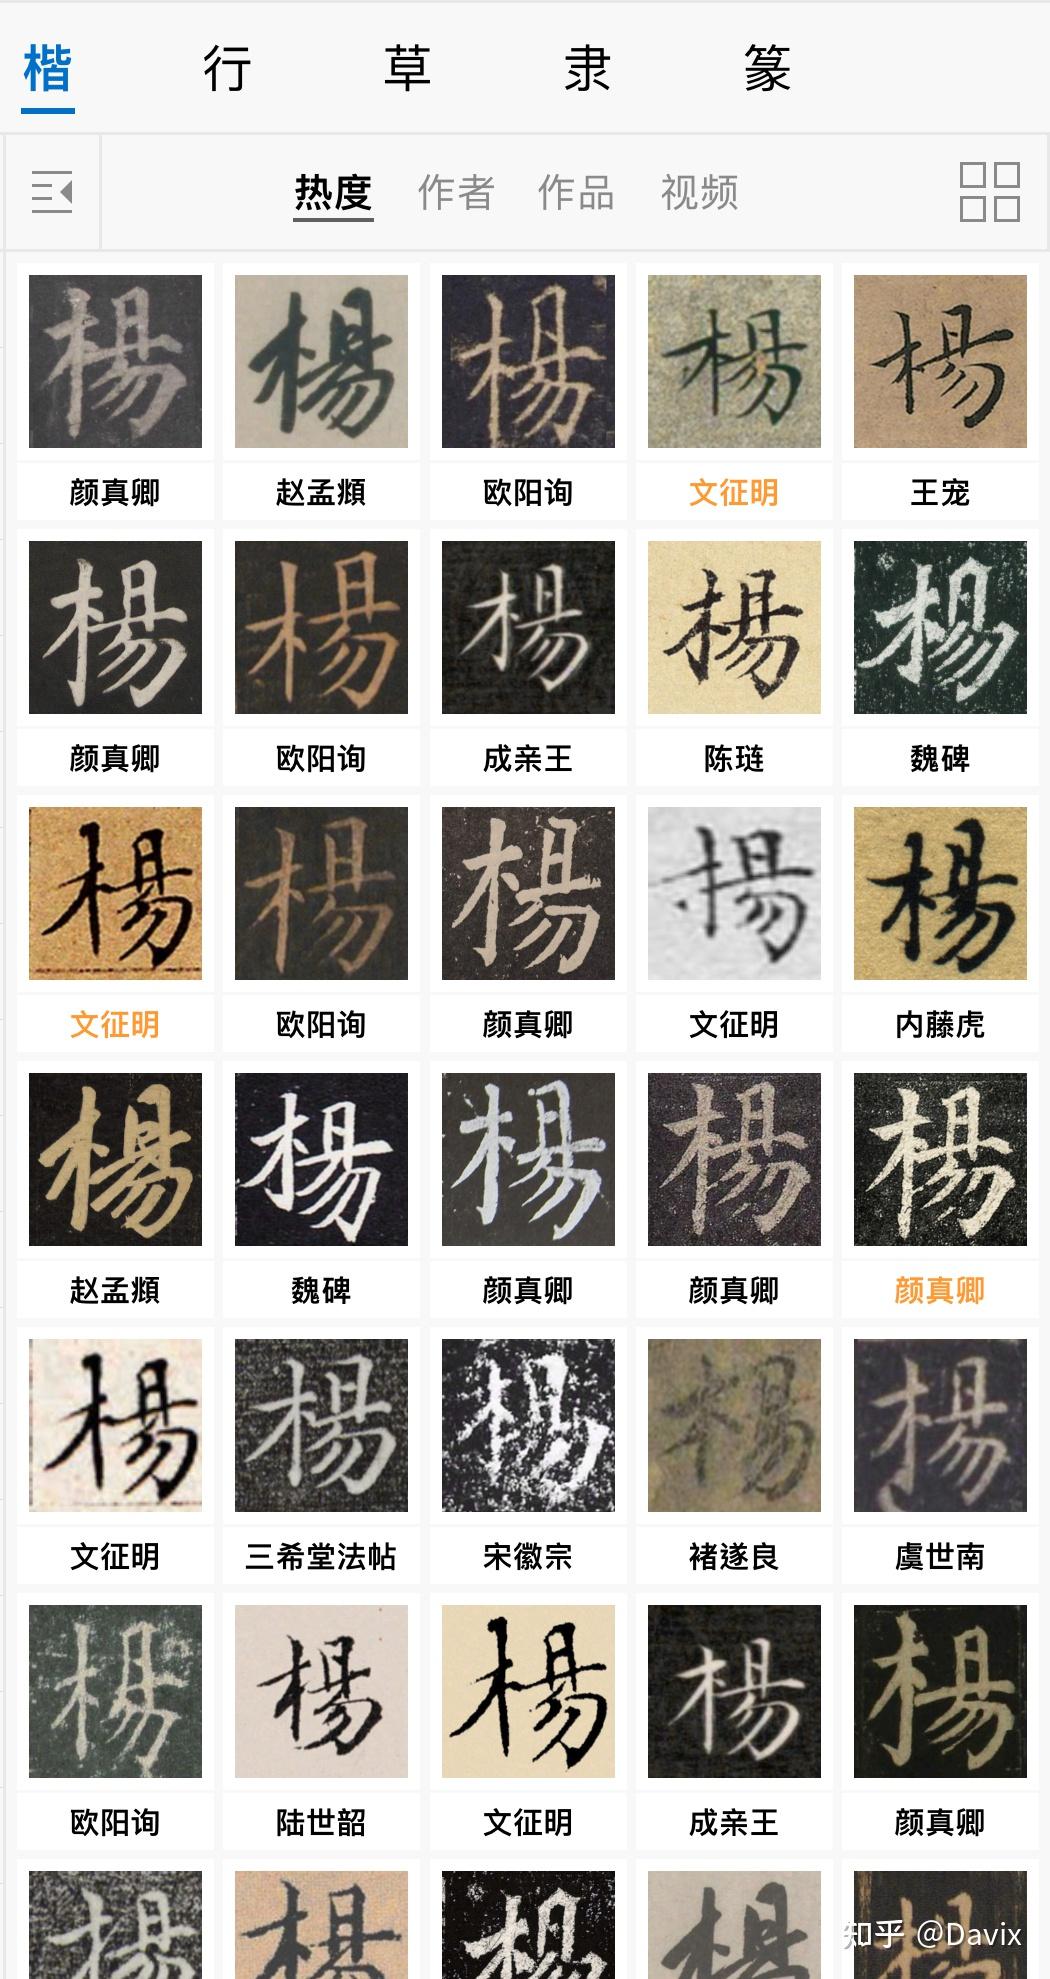 楷 行 草 隶 篆
热度 作者 作品 视频
楊 楊 楊 楊 楊
颜真卿 赵孟頫 欧阳询 文征明 王宠
楊 楊 楊 楊 楊
颜真卿 欧阳询 成亲王 陈琏 魏碑
楊 楊 楊 楊 楊
文征明 欧阳询 颜真卿 文征明 内藤虎
楊 楊 楊 楊 楊
赵孟頫 魏碑 颜真卿 颜真卿 颜真卿
楊 楊 楊 楊 楊
文征明 三希堂法帖 宋徽宗 褚遂良 虞世南
楊 楊 楊 楊 楊
欧阳询 陆世韶 文征明 成亲王 颜真卿
楊 楊 楊 楊 楊
知乎 @Davix